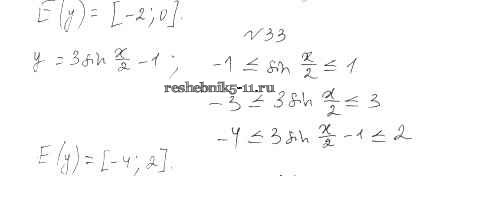 E(y) = [-2; 0].
№33
y = 3 sin x/2 - 1; -1 ≤ sin x/2 ≤ 1
reshebnik5-11.ru
-3 ≤ 3 sin x/2 ≤ 3
-4 ≤ 3 sin x/2 - 1 ≤ 2
E(y) = [-4; 2].